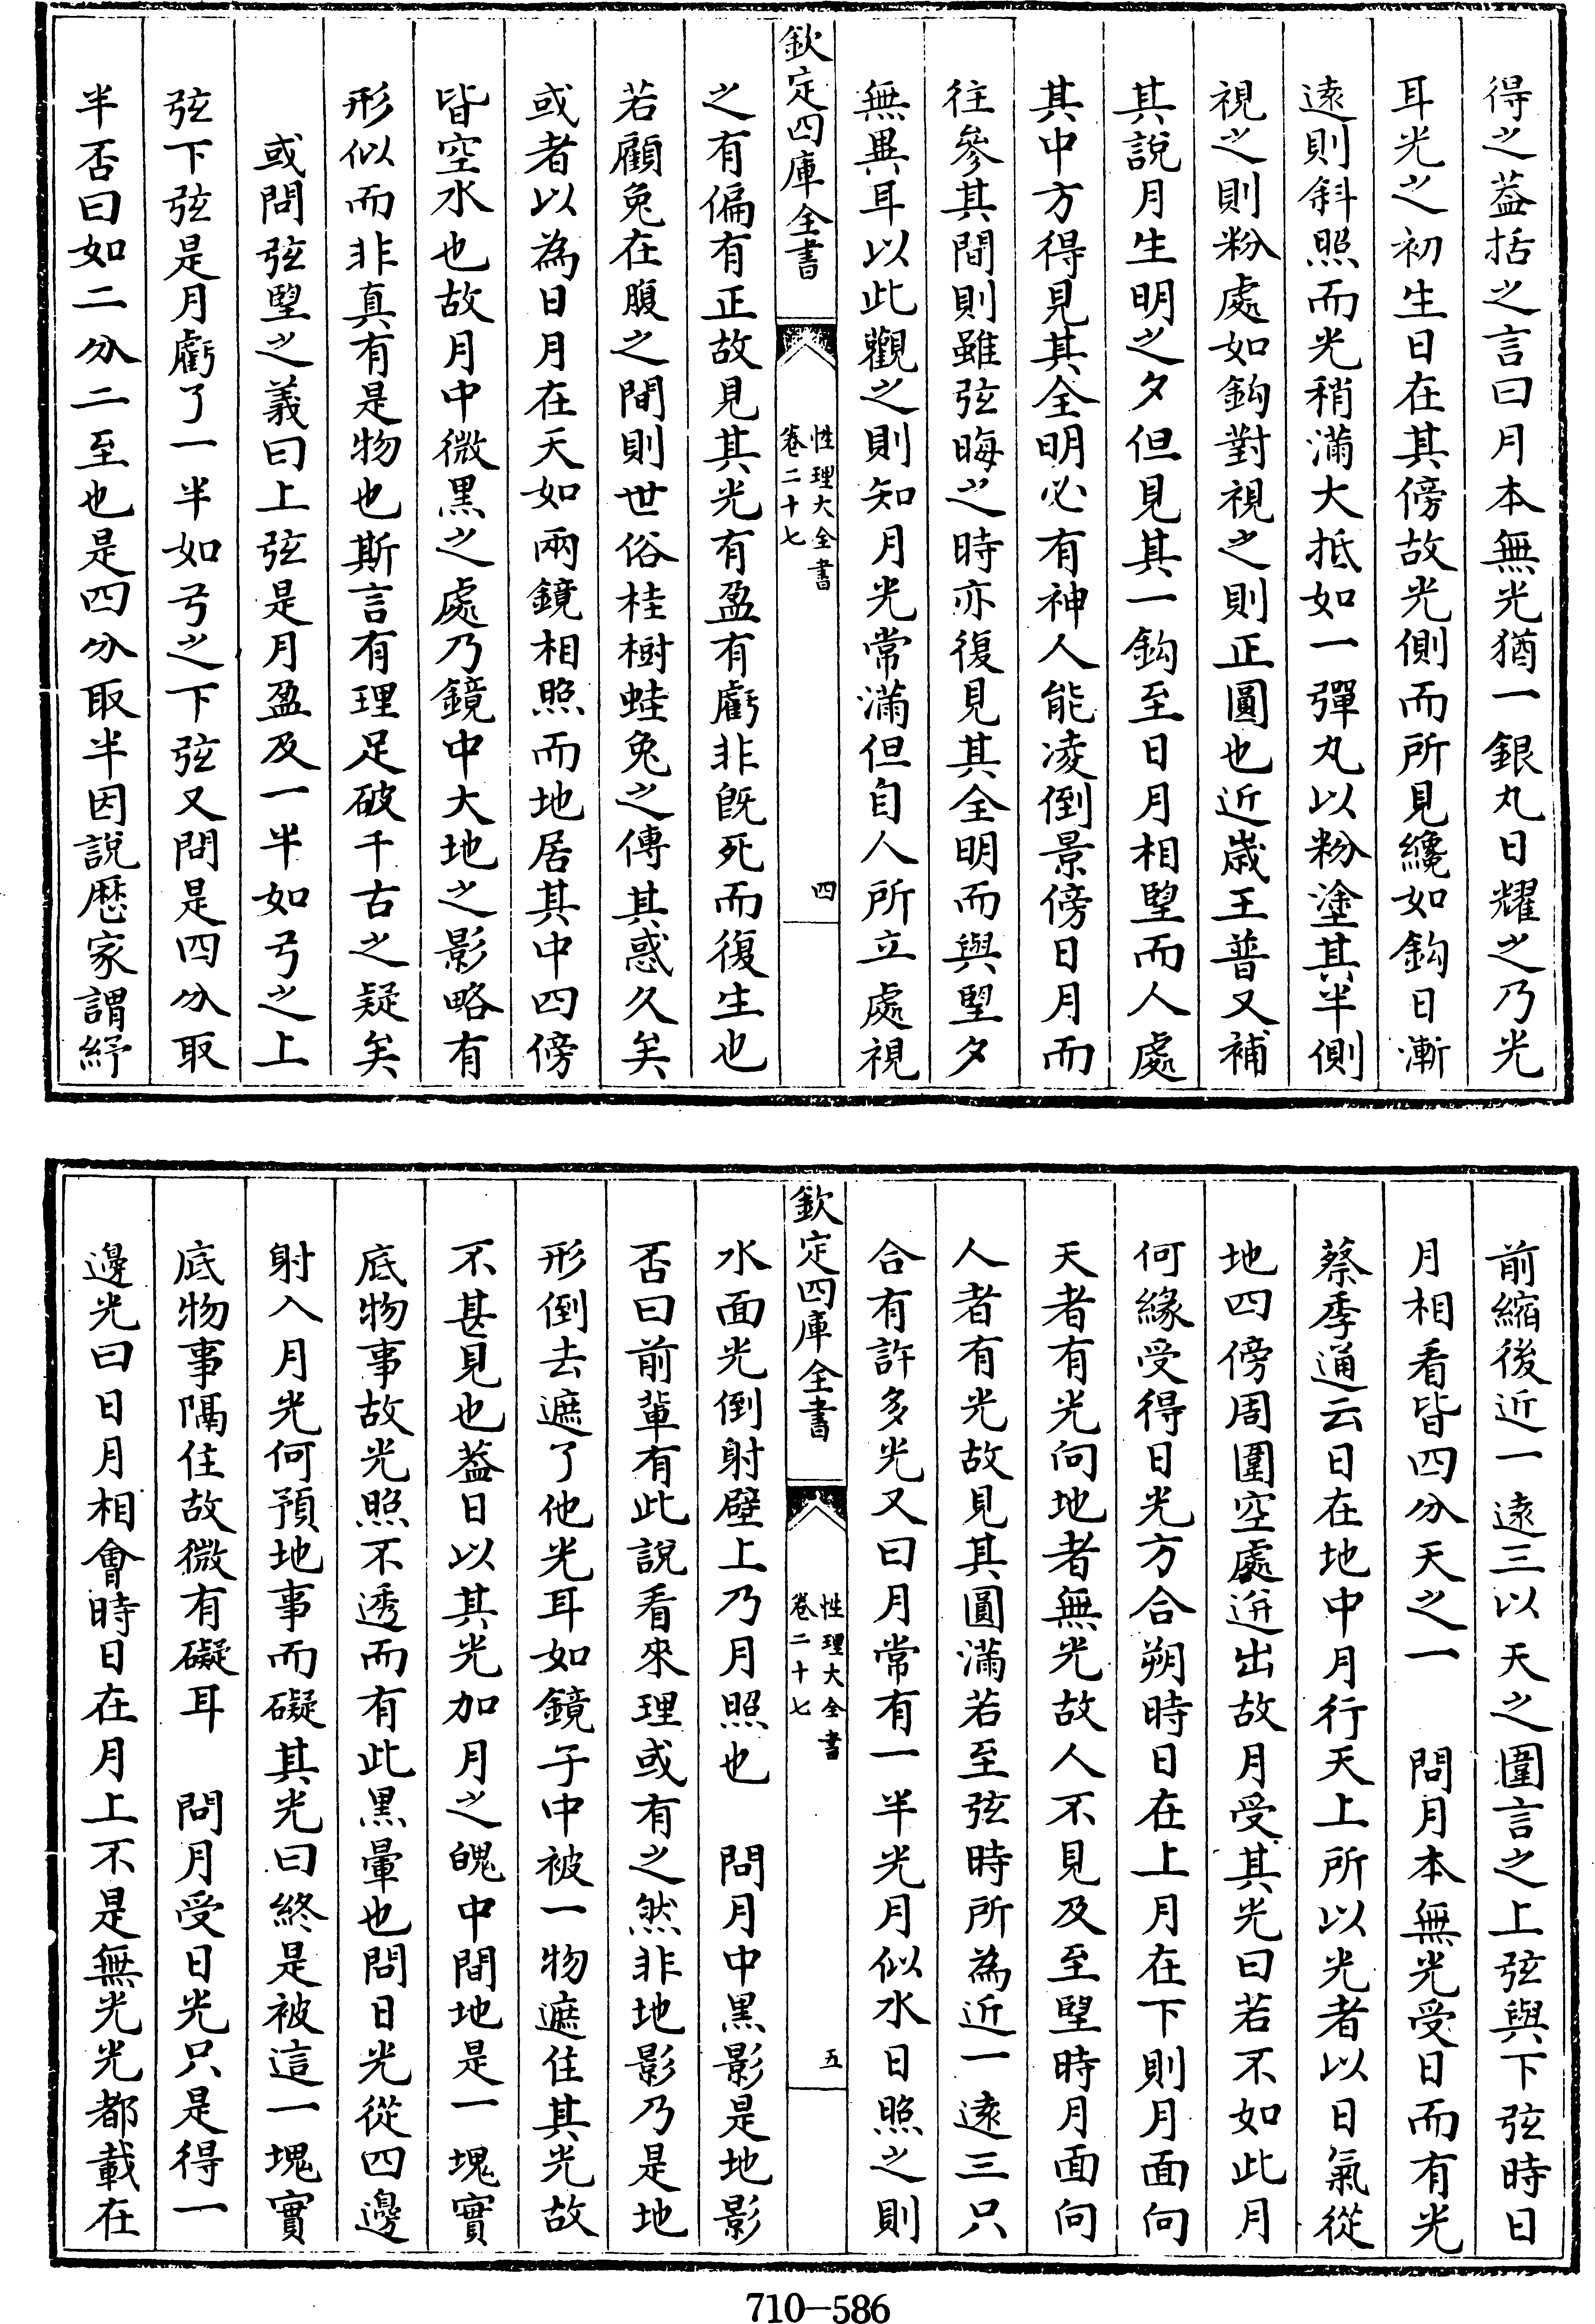 得之葢括之言曰月本無光猶一銀丸日耀之乃光
耳光之初生日在其傍故光側而所見纔如鈎日漸
逺則斜照而光稍滿大抵如一彈丸以粉塗其半側
視之則粉處如鈎對視之則正圓也近嵗王普又補
其說月生明之夕但見其一鈎至日月相望而人處
其中方得見其全明必有神人能凌倒景傍日月而
往參其間則雖弦晦之時亦復見其全明而與望夕
無異耳以此觀之則知月光常滿但自人所立處視
欽定四庫全書
性理大全書
卷二十七
四
之有偏有正故見其光有盈有虧非旣死而復生也
若顧兔在腹之間則世俗桂樹蛙兔之傳其惑久矣
或者以為日月在天如兩鏡相照而地居其中四傍
皆空水也故月中微黒之處乃鏡中大地之影略有
形似而非真有是物也斯言有理足破千古之疑矣
或問弦望之義曰上弦是月盈及一半如弓之上
弦下弦是月虧了一半如弓之下弦又問是四分取
半否曰如二分二至也是四分取半因說厯家謂紓
前縮後近一逺三以天之圍言之上弦與下弦時日
月相看皆四分天之一　問月本無光受日而有光
蔡季通云日在地中月行天上所以光者以日氣從
地四傍周圍空處迸出故月受其光曰若不如此月
何緣受得日光方合朔時日在上月在下則月面向
天者有光向地者無光故人不見及至望時月面向
人者有光故見其圓滿若至弦時所為近一逺三只
合有許多光又曰月常有一半光月似水日照之則
欽定四庫全書
性理大全書
卷二十七
五
水面光倒射壁上乃月照也　問月中黒影是地影
否曰前軰有此說看來理或有之然非地影乃是地
形倒去遮了他光耳如鏡子中被一物遮住其光故
不甚見也葢日以其光加月之魄中間地是一塊實
底物事故光照不透而有此黒暈也問日光從四邊
射入月光何預地事而礙其光曰終是被這一塊實
底物事隔住故微有礙耳　問月受日光只是得一
邊光曰日月相會時日在月上不是無光光都載在
710-586